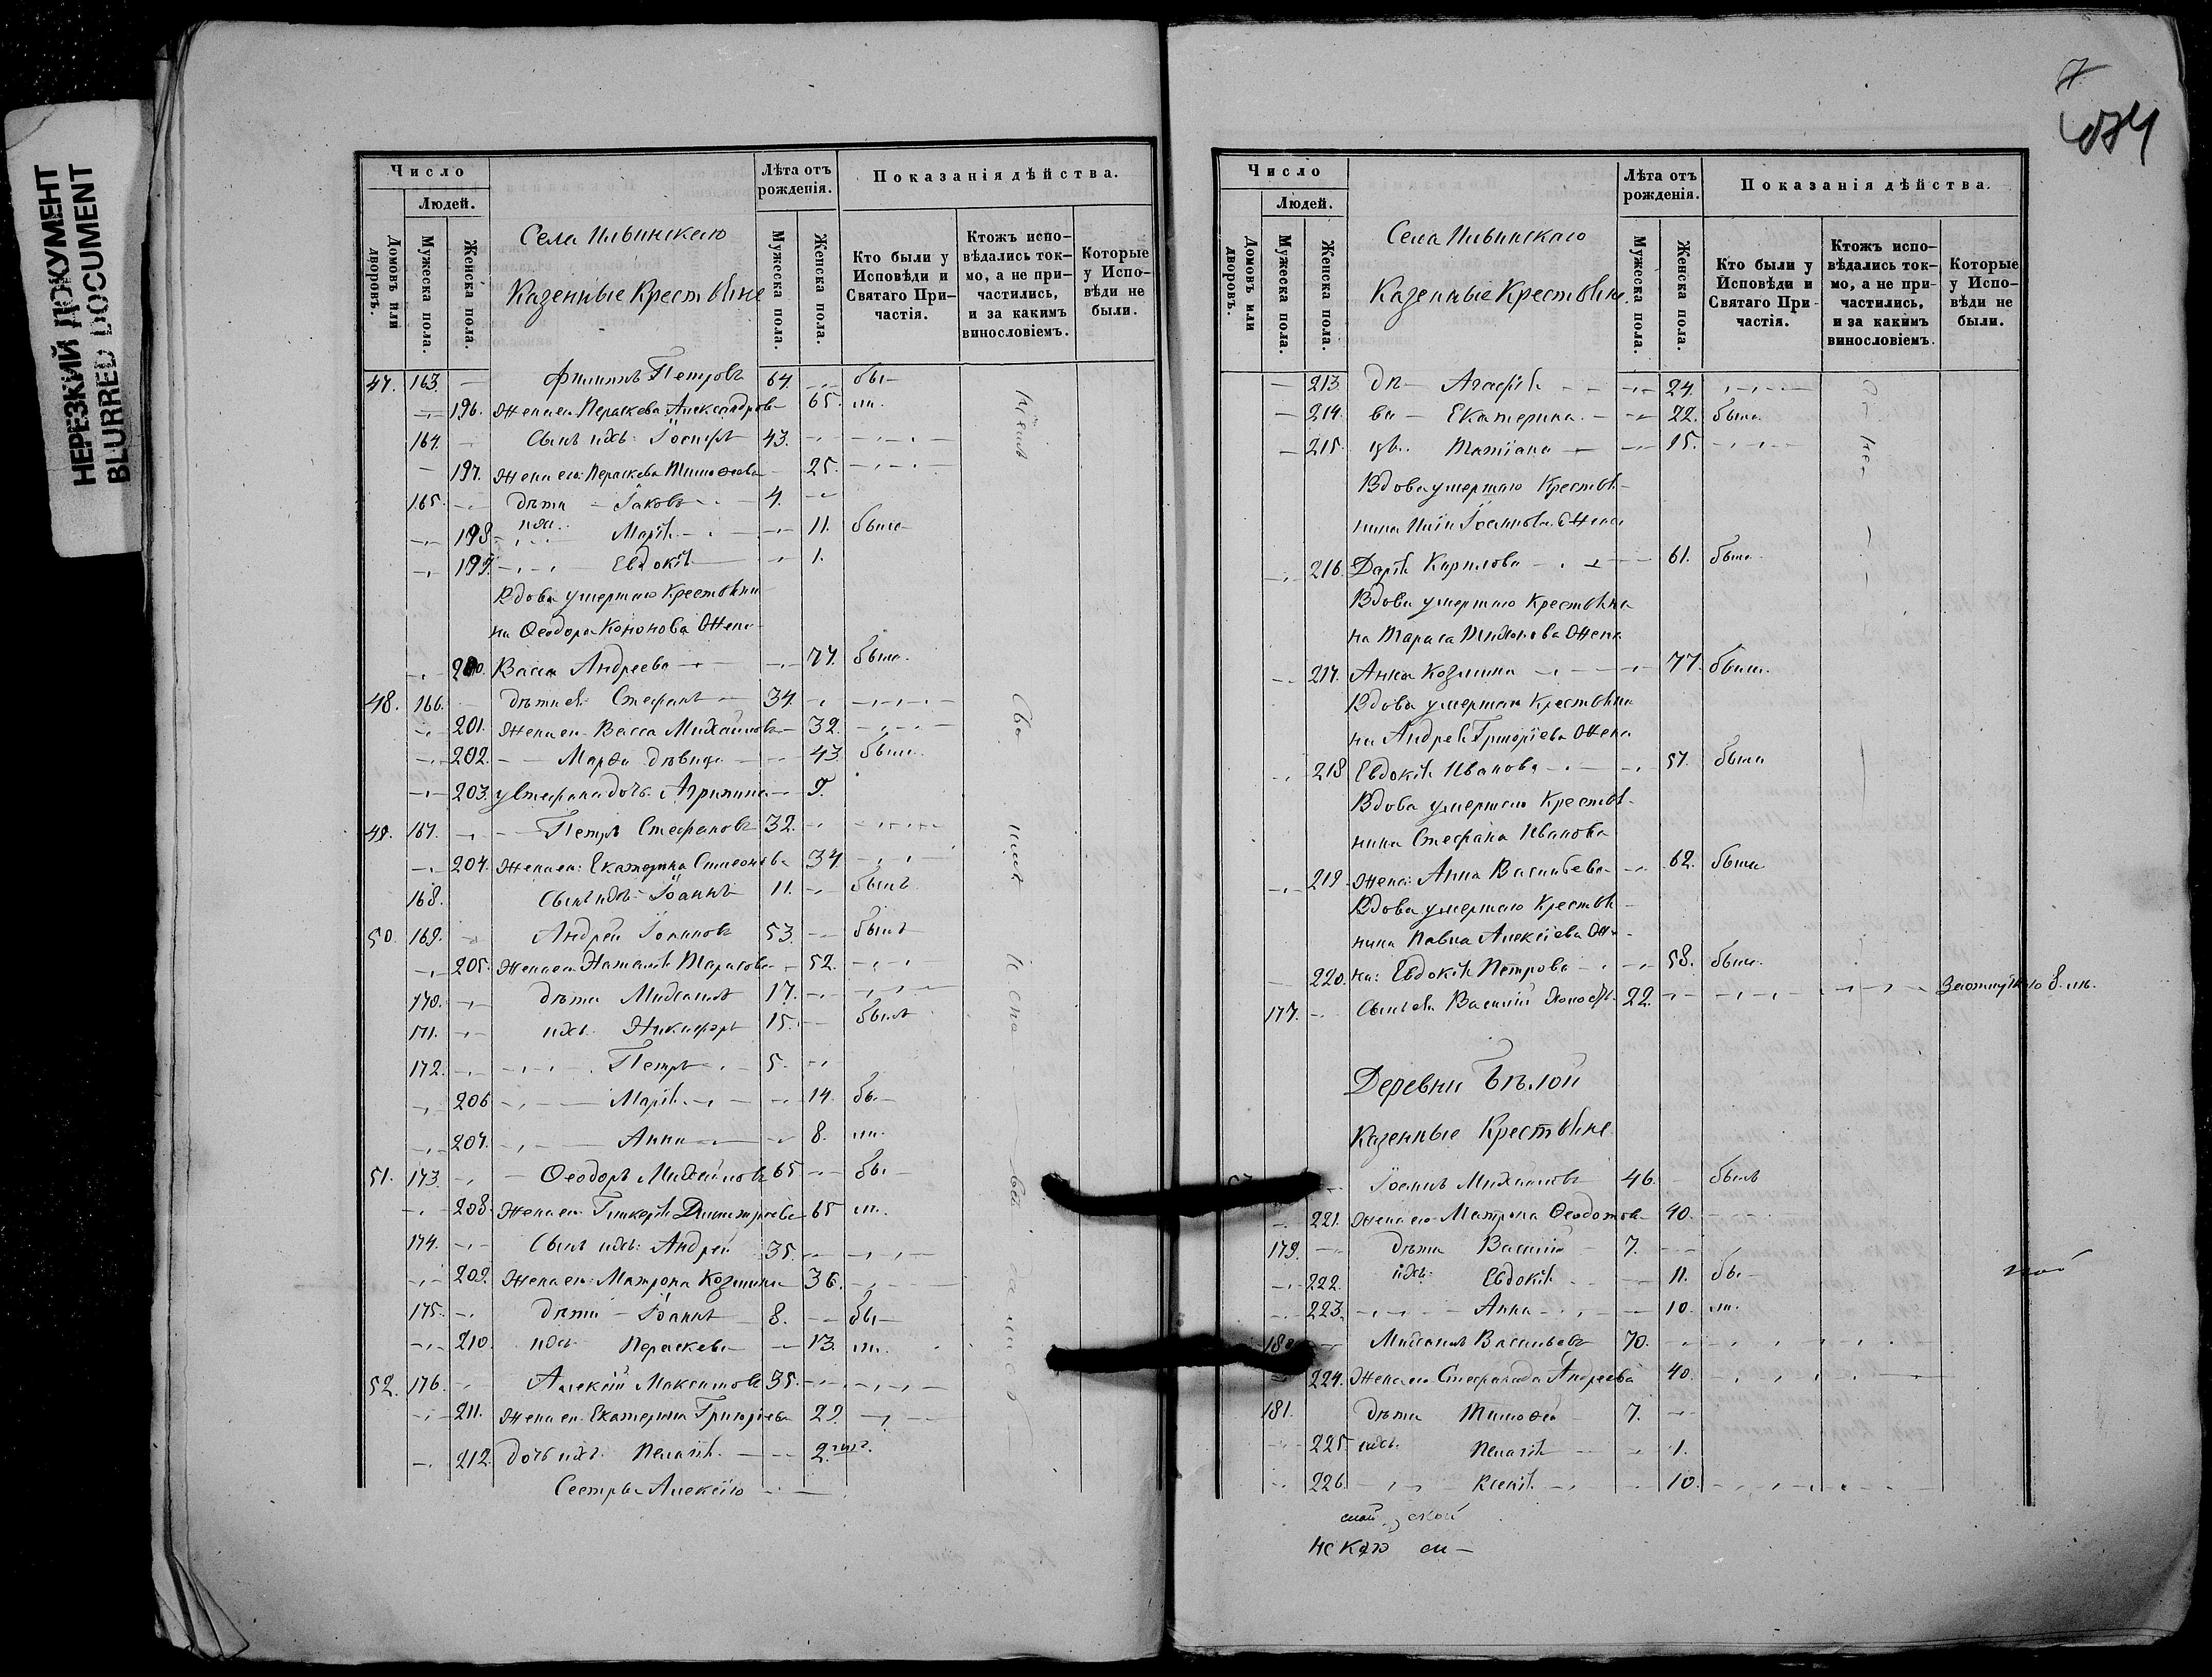 НЕРЕЗКИЙ ДОКУМЕНТ
BLURRED DOCUMENT
Число
Людей.
Домовъ или дворовъ.
Мужеска пола.
Женска пола.
Лѣта отъ рожденія.
Мужеска пола.
Женска пола.
Показанія дѣйства.
Кто были у Исповѣди и Святаго При-частія.
Ктожъ испо-вѣдались ток-мо, а не при-частились, и за какимъ винословіемъ.
Которые у Испо-вѣди не были.
Села
Казенные Крестьяне
47. 163. Филиппъ Петровъ 64. бы-
196. Жена его Параскева Александрова 65. ли.
164. Сынъ ихъ: Іосифъ 43.
197. Жена его: Параскева Тимоѳеева 25.
165. дѣти Іаковъ 4.
198. ихъ. Марія 11. была
199. Евдокія 1.
Вдова умершаго Крестьяни-
на Ѳеодора Кононова Жена
200. Васса Андреева 77. была.
48. 166. дѣти ея: Стефанъ 34.
201. Жена его Васса Михаилова 32.
202. Марѳа дѣвица 43. была.
203. у Стефана дочь Агрипина 9.
49. 167. Петръ Стефановъ 32.
204. Жена его: Екатерина Симеонова 34.
168. Сынъ ихъ Іоаннъ 11. былъ
50. 169. Андрей Іоанновъ 53. былъ
205. Жена его Наталія Тарасова 52.
170. дѣти Михаилъ 17.
171. ихъ. Никифоръ 15. былъ
172. Петръ 5.
206 Марія 14. бы-
207. Анна 8. ли.
51. 173. Ѳеодоръ Михаиловъ 65 бы-
208. Жена его Гликерія Димитріева 65 ли.
174. Сынъ ихъ: Андрей 35.
209. Жена его: Матрона Козмина 36.
175. дѣти Іоаннъ 8. бы-
210. ихъ Параскева 13. ли.
52. 176. Алексій Максимовъ 35.
211. Жена его Екатерина Григоріева 29.
212. дочь ихъ Пелагія 2.
Сестры Алексію
7
Число
Людей.
Домовъ или дворовъ.
Мужеска пола.
Женска пола.
Лѣта отъ рожденія.
Мужеска пола.
Женска пола.
Показанія дѣйства.
Кто были у Исповѣди и Святаго При-частія.
Ктожъ испо-вѣдались ток-мо, а не при-частились, и за какимъ винословіемъ.
Которые у Испо-вѣди не были.
Села
Казенные Крестьяне.
213. дѣ- Агафія 24.
214. ви- Екатерина 22. была.
215. цы. Татіана 15.
Вдова умершаго Крестья-
нина Іоаннова Жена
216. Дарія Кирилова 61. была
Вдова умершаго Крестьяни-
на Тараса Тихонова Жена
217. Анна Козмина 77. была.
Вдова умершаго Крестьяни-
на Андрея Григоріева Жена
218 Евдокія Иванова 57. была
Вдова умершаго Крестья-
нина Стефана Иванова
219. Жена: Анна Васильева 62. была
Вдова умершаго Крестья-
нина Павла Алексіева Же-
220. на: Евдокія Петрова 58. была.
177. Сынъ ея Василій холостъ. 22.
Деревни Бѣлой
Казенные Крестьяне
Іоаннъ Михаиловъ 46. былъ
221. Жена его Матрона Ѳеодотова 40.
179. дѣти Василій 7.
222. ихъ. Евдокія 11. бы-
223. Анна 10. ли.
180 Михаилъ Васильевъ 70.
224. Жена его Стефанида Андреева 40.
181. дѣти Тимоѳей 7.
225. ихъ. Пелагія 1.
226. Ксенія 10.